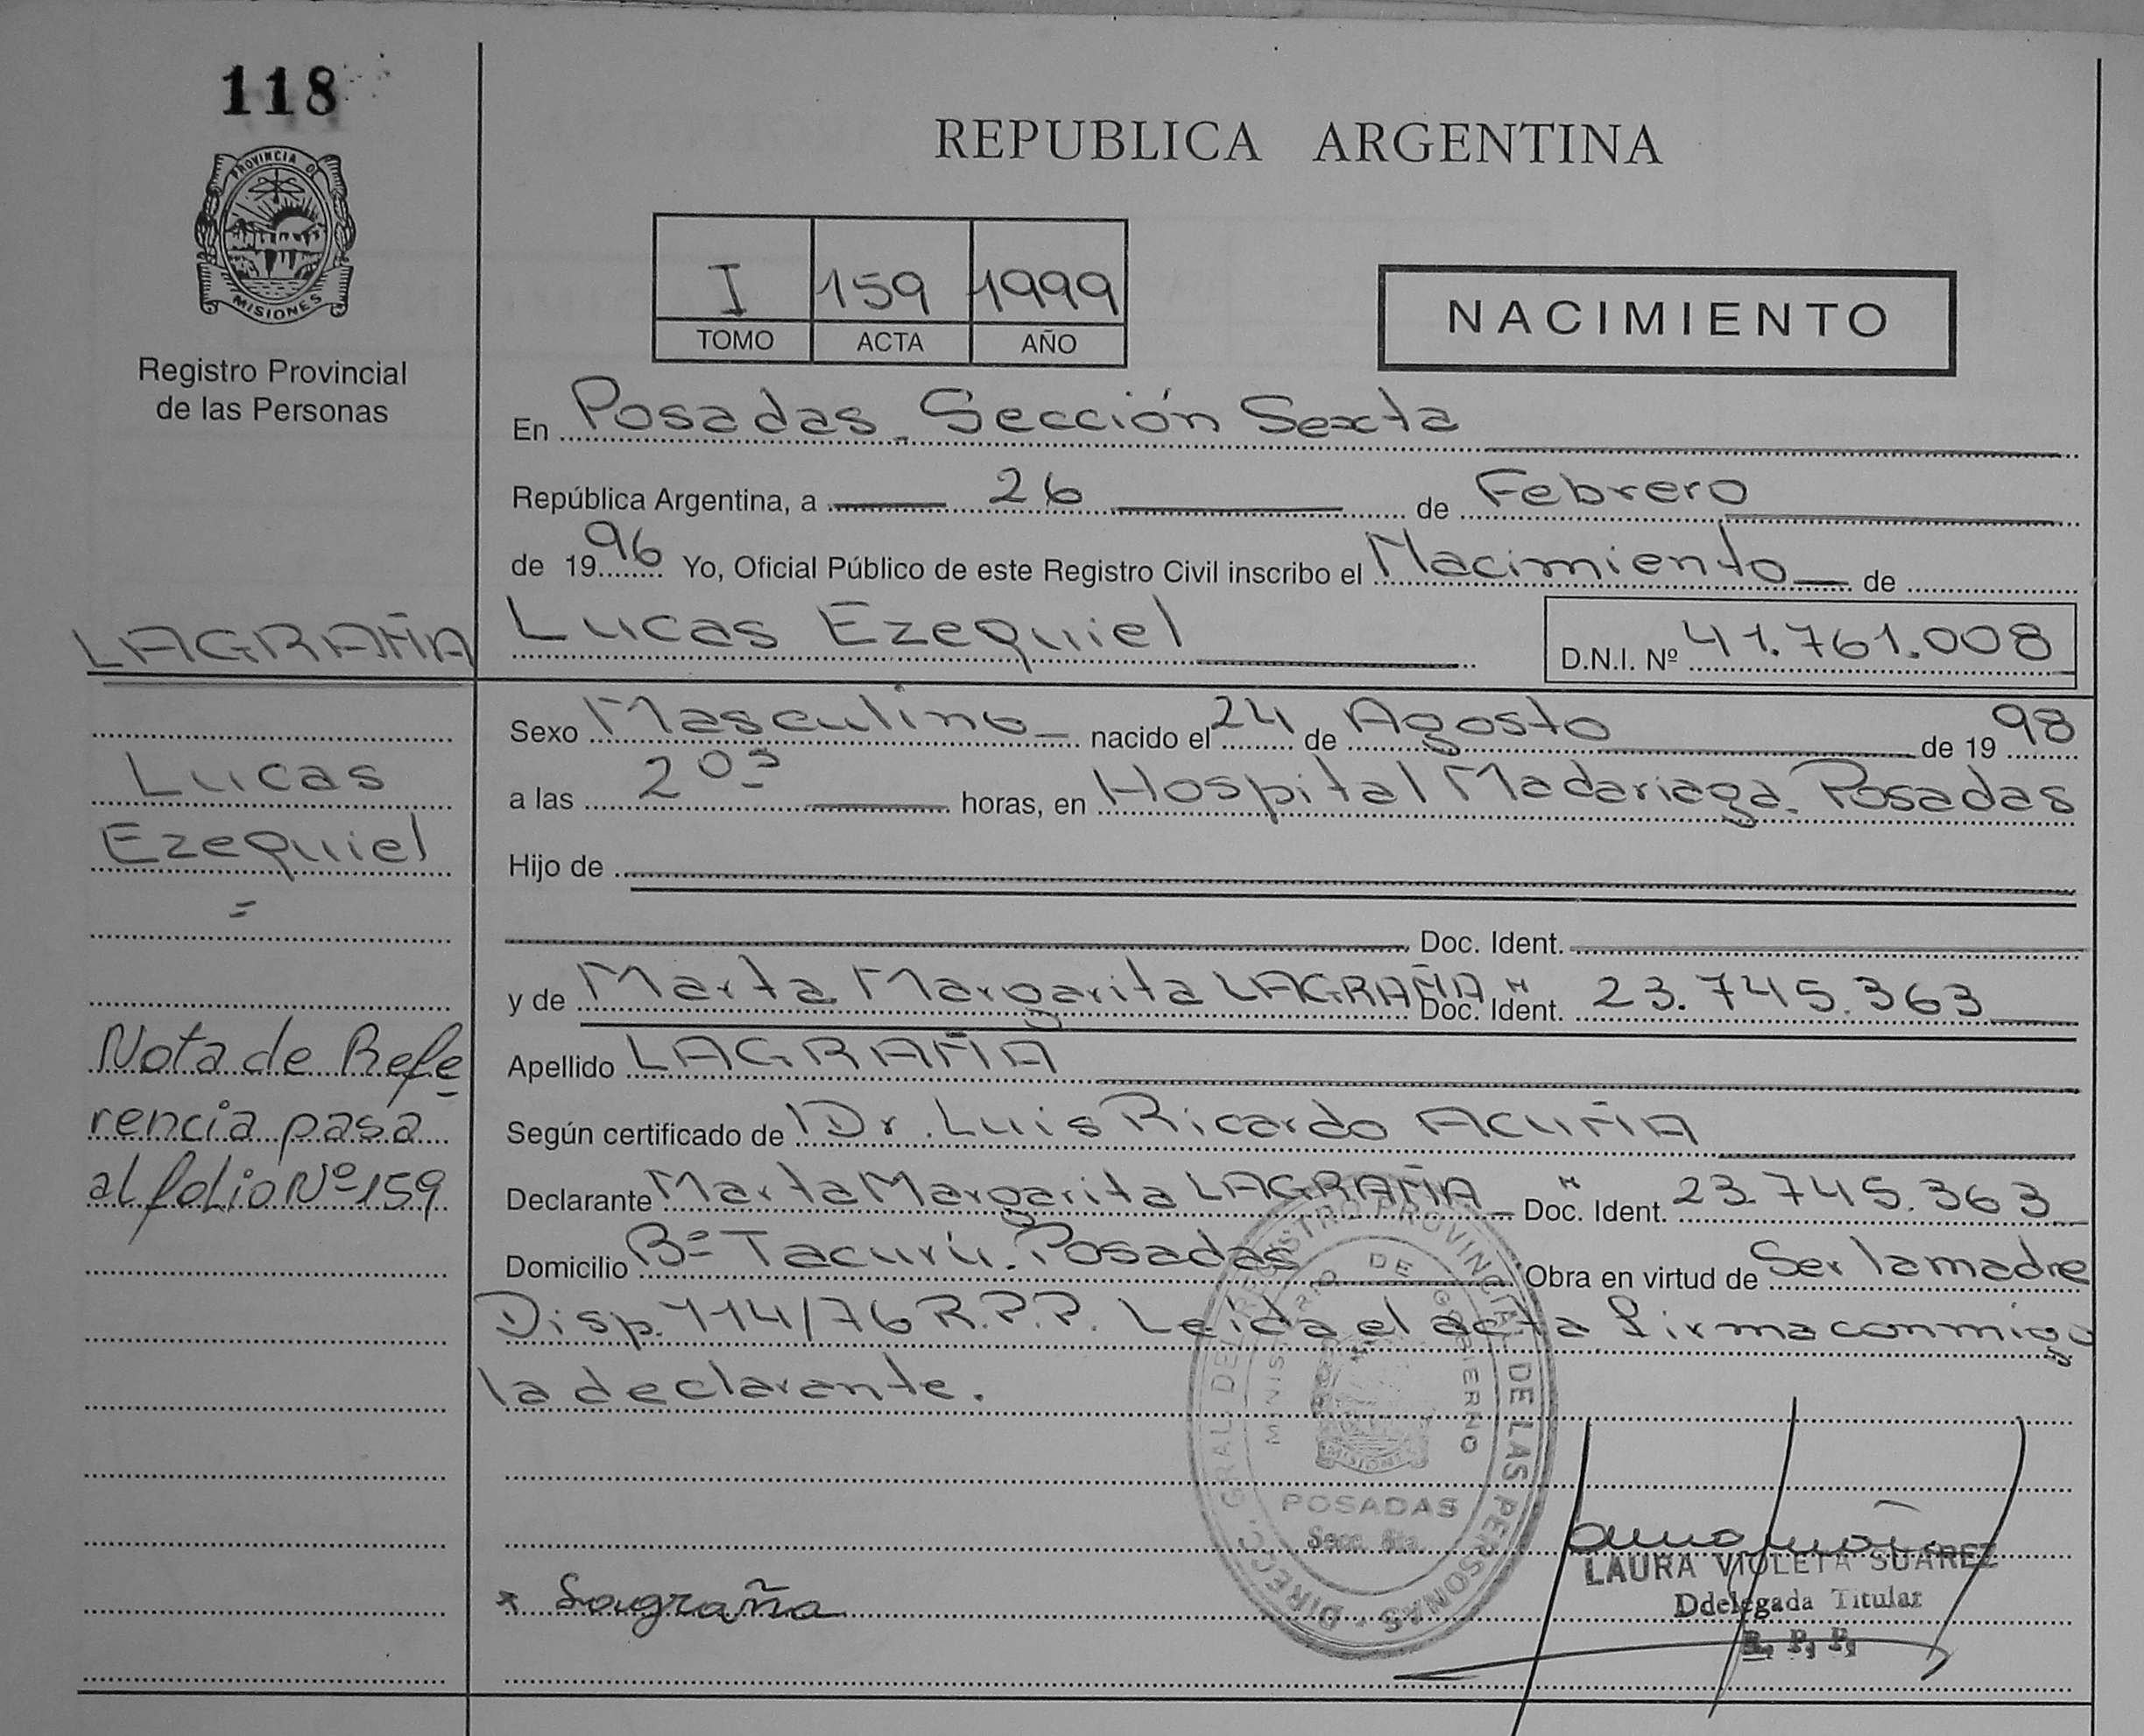 118
PROVINCIA DE
MISIONES
Registro Provincial
de las Personas
REPUBLICA ARGENTINA
I 159 1999
TOMO ACTA AÑO
NACIMIENTO
En Posadas - Sección Sexta
República Argentina, a 26 de Febrero
de 1996 Yo, Oficial Público de este Registro Civil inscribo el Nacimiento de
LAGRAÑA Lucas Ezequiel D.N.I. Nº 41.761.008
Sexo Masculino nacido el 24 de Agosto de 1998
Lucas
a las 20 horas, en Hospital Madariaga. Posadas
Ezequiel
Hijo de
=
Doc. Ident.
y de Marta Margarita LAGRAÑA Doc. Ident. 23.745.363
Nota de Refe
Apellido LAGRAÑA
rencia pasa
Según certificado de Dr. Luis Ricardo ACUÑA
al folio Nº 159
Declarante Marta Margarita LAGRAÑA Doc. Ident. 23.745.363
Domicilio Bº Tacurú. Posadas Obra en virtud de Ser la madre
Disp. 114/76 R.P.P. Leída el acta firma conmigo
la declarante.
DIRECC. GRAL. DEL REGISTRO PROVINCIAL DE LAS PERSONAS
MINISTERIO DE GOBIERNO
MISIONES
POSADAS
Secc. 6ta.
LAURA VIOLETA SUAREZ
Ddelegada Titular
R. P. P.
* Lagraña